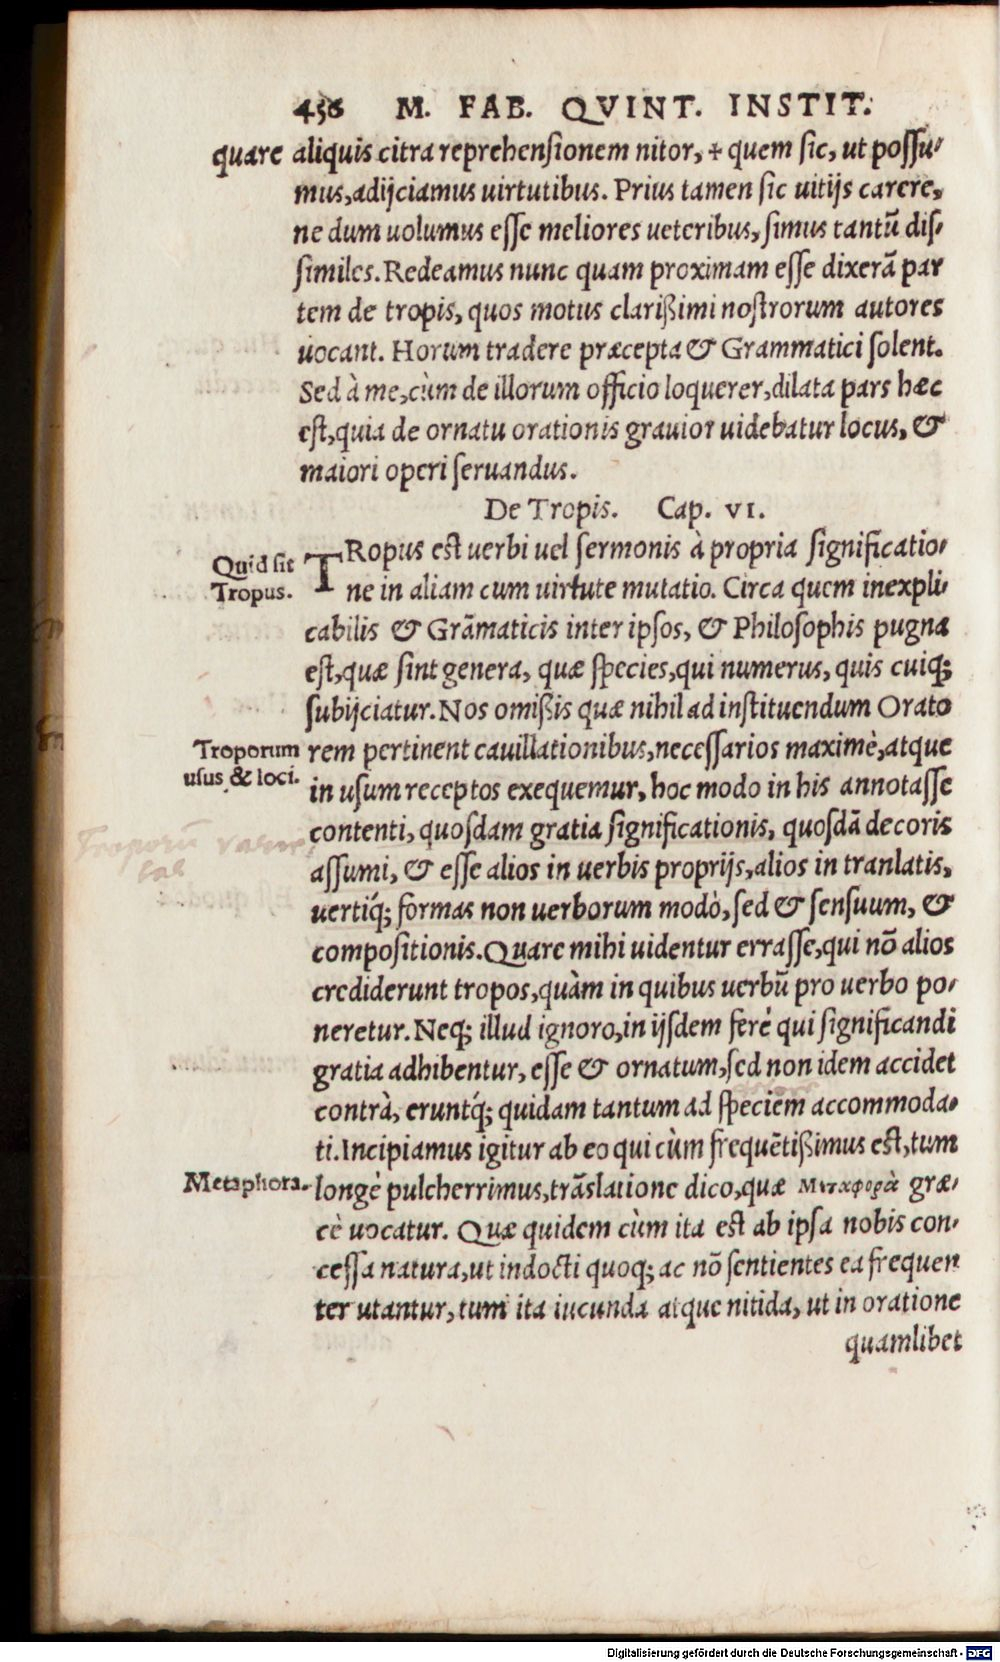 456 M. FAB. QVINT. INSTIT.
quare aliquis citra reprehensionem nitor, + quem sic, ut possu-
mus, adijciamus uirtutibus. Prius tamen sic uitijs carere,
ne dum uolumus esse meliores ueteribus, simus tantū dis-
similes. Redeamus nunc quam proximam esse dixerā par
tem de tropis, quos motus clarißimi nostrorum autores
uocant. Horum tradere præcepta & Grammatici solent.
Sed à me, cùm de illorum officio loquerer, dilata pars hæc
est, quia de ornatu orationis grauior uidebatur locus, &
maiori operi seruandus.
De Tropis. Cap. VI.
Quid sit
Tropus.
TRopus est uerbi uel sermonis à propria significatio-
ne in aliam cum uirtute mutatio. Circa quem inexpli-
cabilis & Grāmaticis inter ipsos, & Philosophis pugna
est, quæ sint genera, quæ species, qui numerus, quis cuiq;
subijciatur. Nos omißis quæ nihil ad instituendum Orato
Troporum
usus & loci.
rem pertinent cauillationibus, necessarios maximè, atque
in usum receptos exequemur, hoc modo in his annotasse
contenti, quosdam gratia significationis, quosdā decoris
Troporū
assumi, & esse alios in uerbis proprijs, alios in tranlatis,
uertiq́; formas non uerborum modò, sed & sensuum, &
compositionis. Quare mihi uidentur errasse, qui nō alios
crediderunt tropos, quàm in quibus uerbū pro uerbo po-
neretur. Neq; illud ignoro, in ijsdem ferè qui significandi
gratia adhibentur, esse & ornatum, sed non idem accidet
contrà, eruntq́; quidam tantum ad speciem accommoda-
ti. Incipiamus igitur ab eo qui cùm frequētißimus est, tum
Metaphora.
longè pulcherrimus, trāslatione dico, quæ Μεταφορὰ græ-
cè uocatur. Quæ quidem cùm ita est ab ipsa nobis con-
cessa natura, ut indocti quoq; ac nō sentientes ea frequen
ter utantur, tum ita iucunda atque nitida, ut in oratione
quamlibet
Digitalisierung gefördert durch die Deutsche Forschungsgemeinschaft - DFG